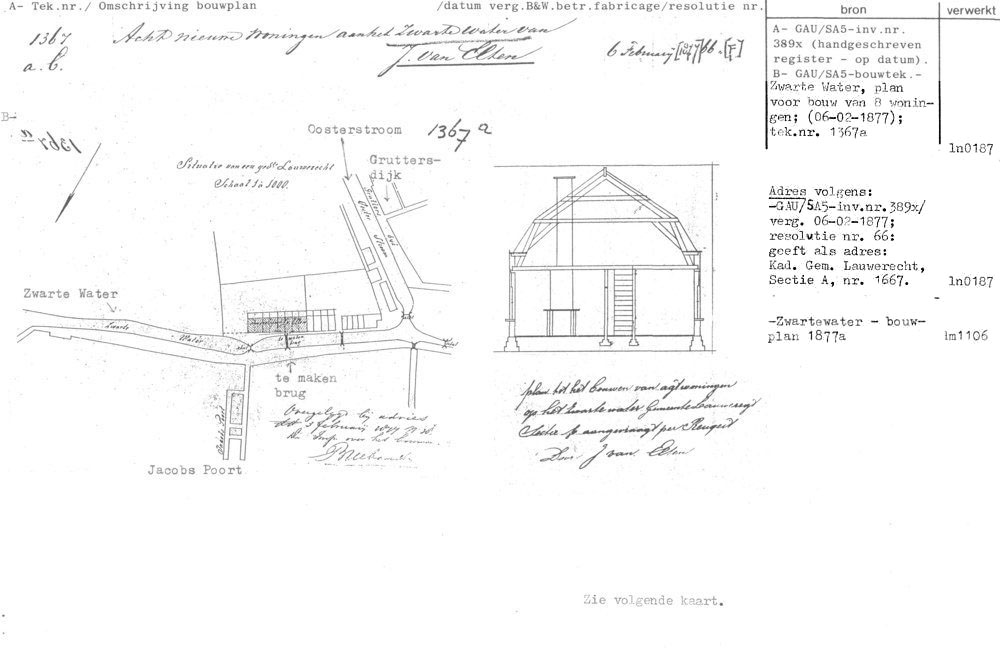 A- Tek.nr./ Omschrijving bouwplan /datum verg.B&W.betr.fabricage/resolutie nr.
bron
verwerkt
1367
a.b.
Acht nieuwe Woningen aan het Zwarte Water van
J. van Elten
6 February [1877] 66.[F]
A- GAU/SA5-inv.nr.
389x (handgeschreven
register - op datum).
B- GAU/SA5-bouwtek.-
Zwarte Water, plan
voor bouw van 8 wonin-
gen; (06-02-1877);
tek.nr. 1367a
ln0187
B-
1367 a
Oosterstroom
1367 a
Situatie van een gedte Lauwerecht
Schaal 1 à 1000.
Grutters-
dijk
Zwarte Water
Zwarte Water
te maken
brug
Jacobs Poort
Overgelegd bij advies
dd 3 februarij 1877 N 36
De Insp over het bouwen.
plan tot het bouwen van agt woningen
op het zwarte water Gemeente Lauweregt
Sectie A aangevraagt per Request
Door J van Elten
Adres volgens:
-GAU/SA5-inv.nr.389x/
verg. 06-02-1877;
resolutie nr. 66:
geeft als adres:
Kad. Gem. Lauwerecht,
Sectie A, nr. 1667.
ln0187
-Zwartewater - bouw-
plan 1877a
im1106
Zie volgende kaart.